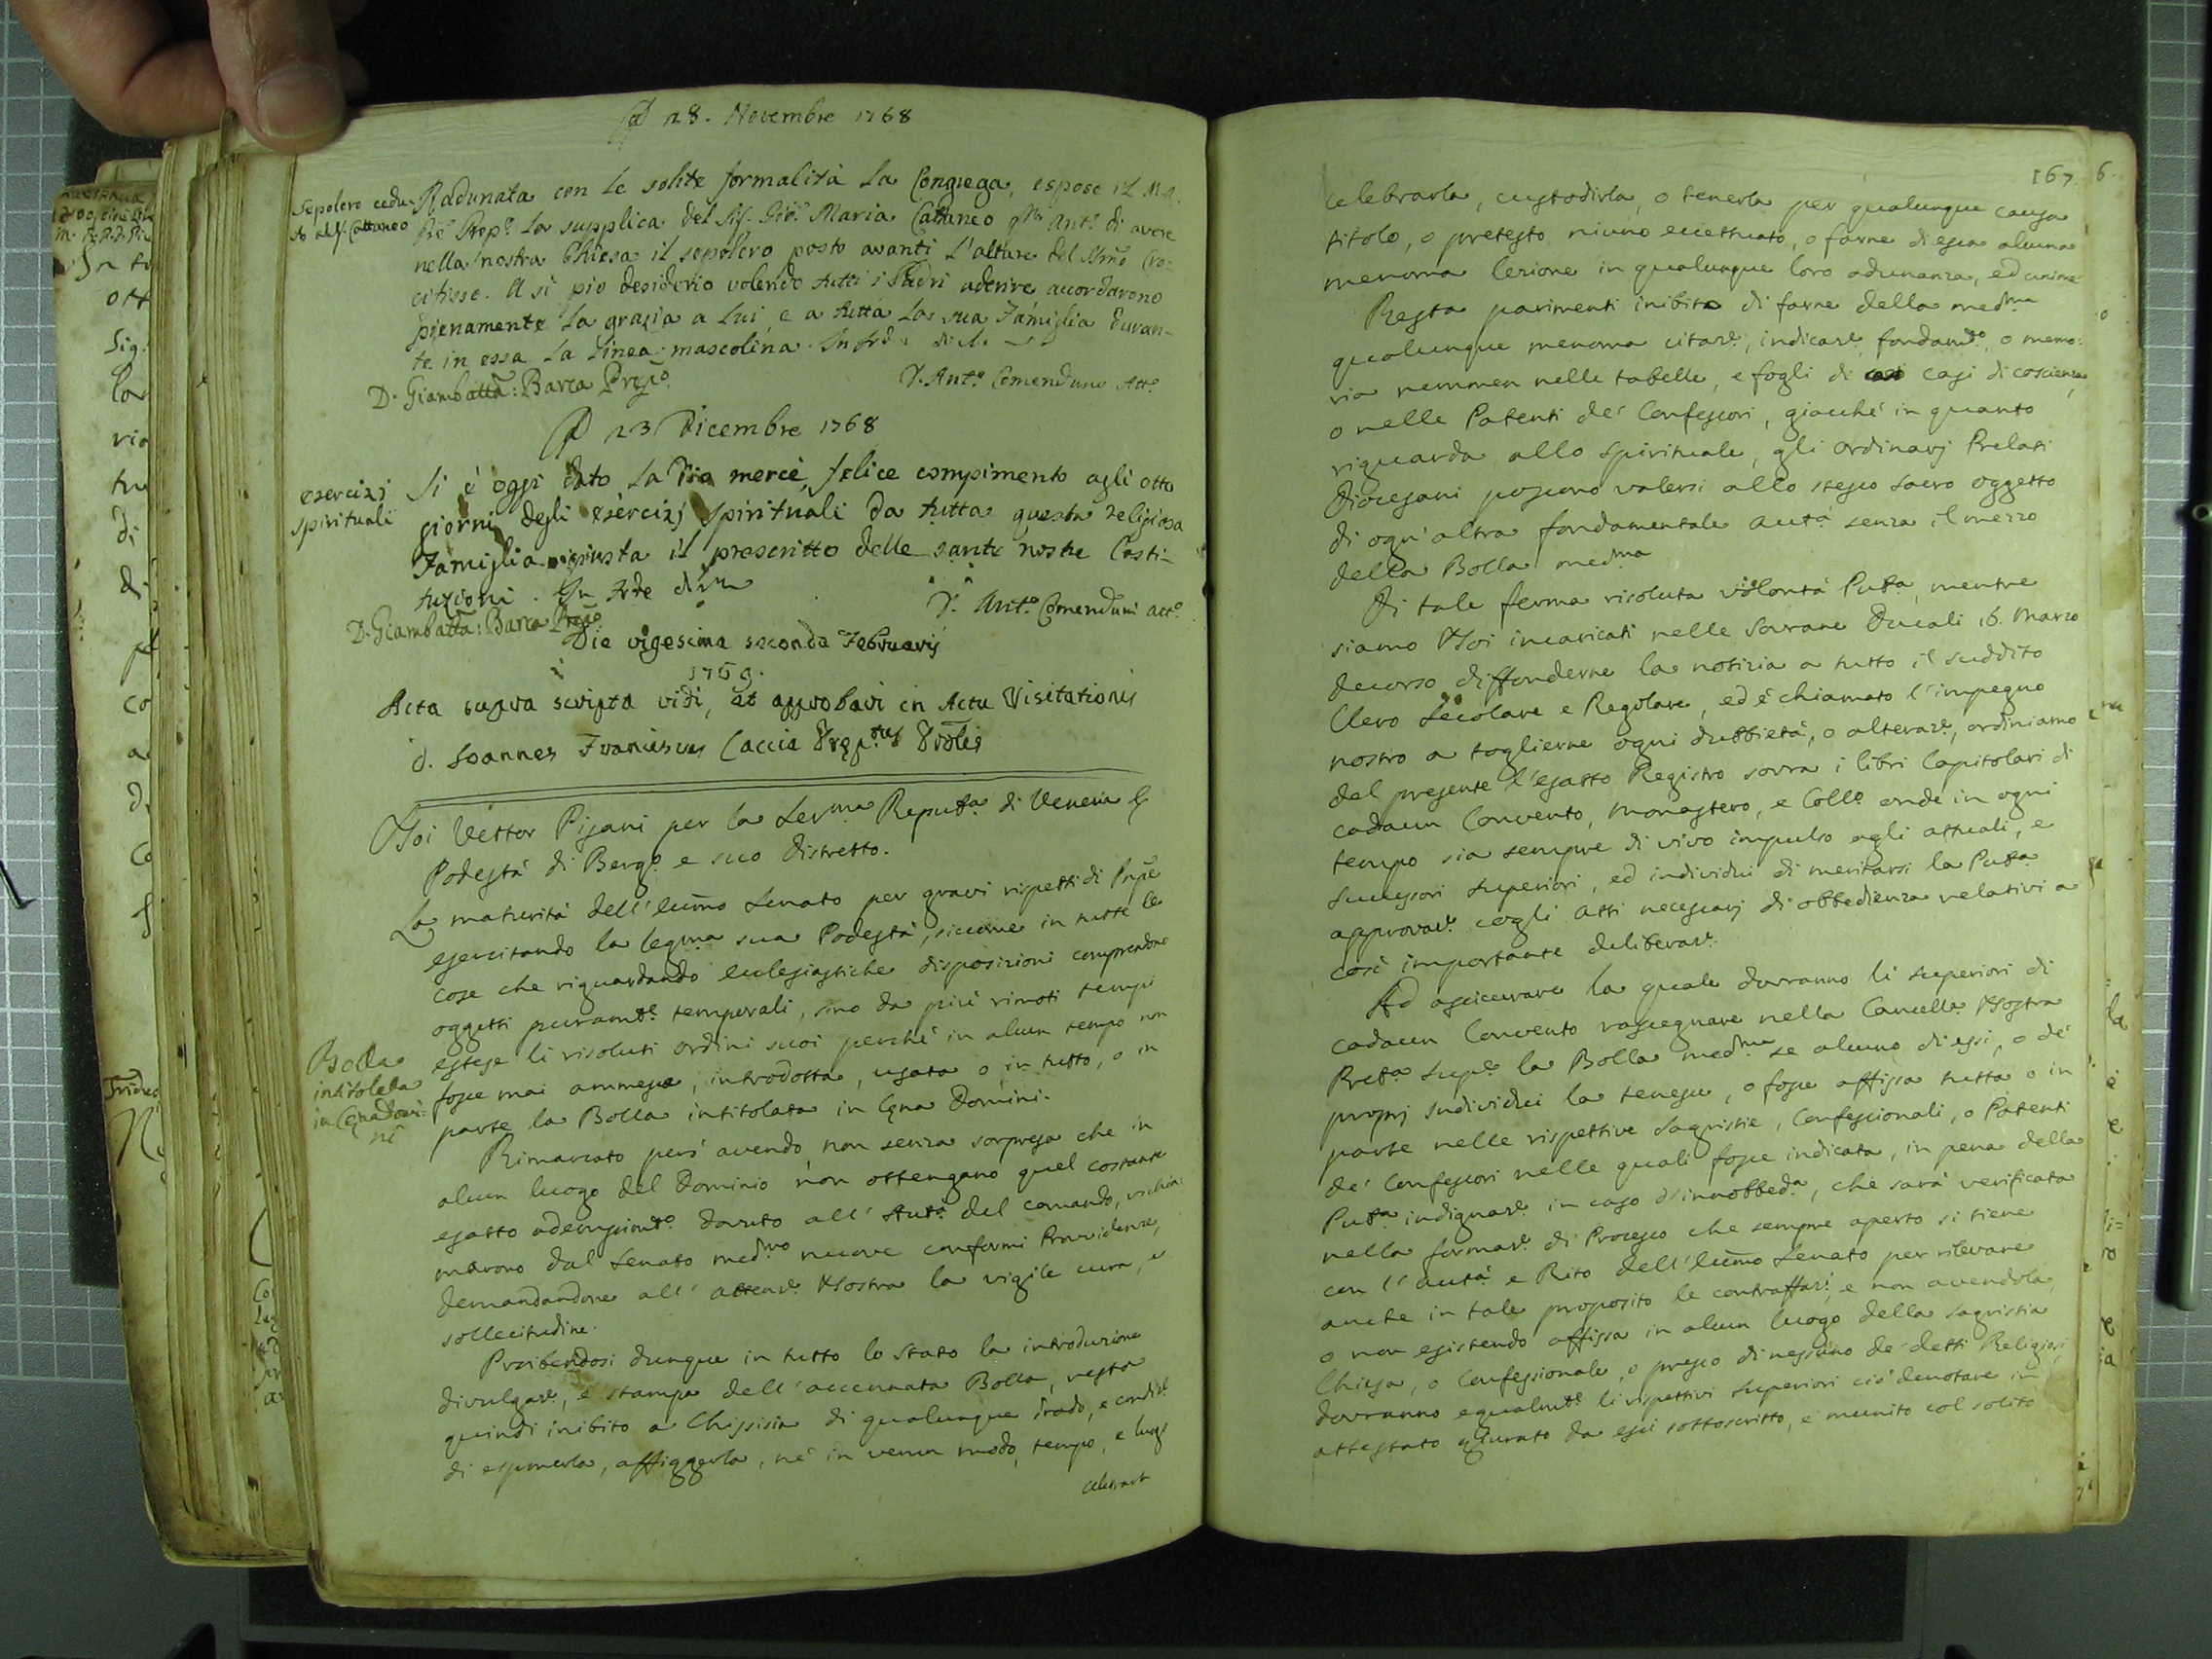 A 28. Novembre 1768
Sepolcro cedu-
to al S. Cattaneo
Radunata con le solite formalità la Congrega, espose il M.R.
Pre Prep.o la supplica del Sig. Gio: Maria Cattaneo qm Ant.o di avere
nella nostra Chiesa il sepolcro posto avanti l'altare del SSmo Cro-
cifisso. A sì pio desiderio volendo tutti i Padri aderire accordarono
pienamente la grazia a lui, e a tutta la sua Famiglia duran-
te in essa la linea mascolina. In fede di che
D. Giambatta: Barca Prep.o
D. Ant.o Comenduno Att.o
A 23 Dicembre 1768
esercizj
spirituali
Si è oggi dato la Dio mercè, felice compimento agli otto
giorni degli esercizj spirituali da tutta questa religiosa
Famiglia giusta il prescritto delle sante nostre Costi-
tuzioni. In fede
D. Giambatta: Barca Prep.o
D. Ant.o Comenduni Att.o
Die vigesima seconda Februarij
1769.
Acta supra scripta vidi, et approbavi in Actu Visitationis
d. Joannes Franciscus Caccia Prep.tus Prolis
Noi Vettor Pisani per la Ser.ma Repub.a di Venezia &
Podestà di Berg.o e suo distretto.
La maturità dell'Eccmo Senato per gravi rispetti di Prpe
esercitando la legma sua Podestà, siccome in tutte le
cose che riguardando ecclesiastiche disposizioni comprendono
oggetti puramte temporali, sino da più rimoti tempi
estese li risoluti ordini suoi perchè in alcun tempo non
Bolla
intitolata
in Cena Domi-
ni
fosse mai ammessa, introdotta, usata o in tutto, o in
parte la Bolla intitolata in Cena Domini.
Rimarcato però avendo, non senza sorpresa che in
alcun luogo del Dominio non ottengano quel costante
esatto adempimto dovuto all'Autà del comando, richia-
marono dal Senato medmo nuove conformi Providenze,
demandandone all'attenz.e Nostra la vigile cura, e
sollecitudine.
Proibendosi dunque in tutto lo Stato la introduzione
divulgaz.e, e stampa dell'accennata Bolla, resta
quindi inibito a Chissisia di qualunque Grado, e condiz.e
di esponerla, affiggerla, nè in verun modo, tempo, e luogo
celebrarla
167. 6.
celebrarla, custodirla, o tenerla per qualunque causa
titolo, o pretesto niuno eccettuato, o farne di essa alcuna
menoma lezione in qualunque loro adunanza, ed unione
Resta parimenti inibito di farne della medma
qualunque menoma citaz.e, indicaz.e, fondamto, o memo-
ria nemmen nelle tabelle, e fogli di casi di coscienza,
o nelle Patenti de' Confessori, giacchè in quanto
riguarda allo Spirituale, gli ordinarj Prelati
Diocesani possono valersi allo stesso sacro oggetto
di ogn'altra fondamentale autà senza il mezzo
della Bolla medma
Di tale ferma risoluta volontà Pubca, mentre
siamo Noi incaricati nelle Sovrane Ducali 16. Marzo
decorso diffonderne la notizia a tutto il suddito
Clero Secolare e Regolare, ed è chiamato l'impegno
nostro a toglierne ogni dubbietà, o alteraz.e, ordiniamo
del presente l'esatto Registro sovra i libri Capitolari di
cadaun Convento, Monastero, e Collo onde in ogni
tempo sia sempre di vivo impulso agli attuali, e
successori Superiori, ed individui di meritarsi la Pubca
approvaz.e cogli atti necessarj di obbedienza relativi a
così importante deliberaz.e
Ad assicurare la quale dovranno li superiori di
cadaun Convento rassegnare nella Cancella Nostra
Preta Supe la Bolla medma se alcuno di essi, o de'
proprj Individui la tenesse, o fosse affissa tutta o in
parte nelle rispettive Sagristie, Confessionali, o Patenti
de' Confessori nelle quali fosse indicata, in pena della
Pubca indignaz.e in caso d'innobbed.a, che sarà verificata
nella formaz.e di Processo che sempre aperto si tiene
con l'autà e Rito dell'Eccmo Senato per rilevare
anche in tale proposito le contraffaz.i, e non avendola,
o non esistendo affissa in alcun luogo della Sagristia
Chiesa, o Confessionale, o presso di nessuno de' detti Religiosi,
dovranno egualmte li rispettivi Superiori ciò denotare in
attestato giurato da essi sottoscritto, e munito col solito